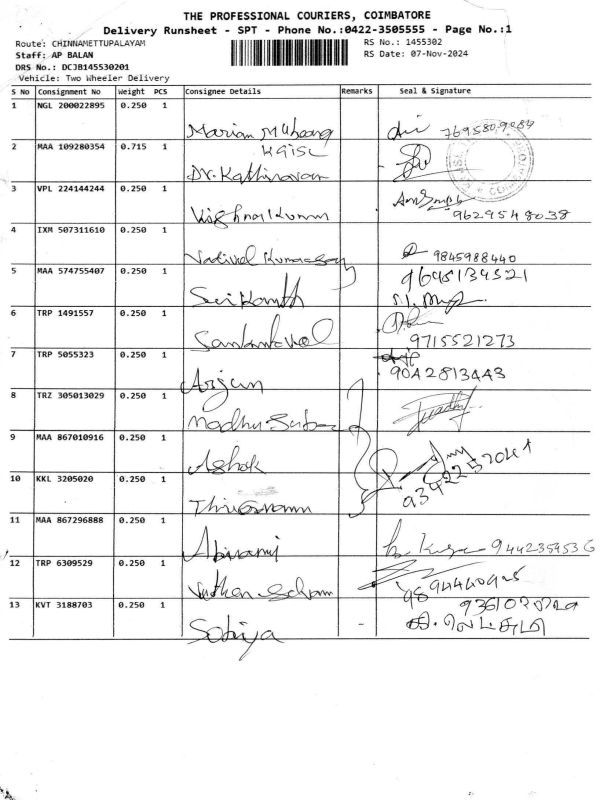 THE PROFESSIONAL COURIERS, COIMBATORE
Delivery Runsheet - SPT - Phone No.:0422-3505555 - Page No.:1
Route: CHINNAMETTUPALAYAM
RS No.: 1455302
Staff: AP BALAN
RS Date: 07-Nov-2024
DRS No.: DCJB145530201
Vehicle: Two Wheeler Delivery
S No Consignment No Weight PCS Consignee Details Remarks Seal & Signature
1 NGL 200022895 0.250 1
Marian
2 MAA 109280354 0.715 1
Dr. Kathiravan
3 VPL 224144244 0.250 1
Vishnu Kumar 9629548038
4 IXM 507311610 0.250 1
9845988440
5 MAA 574755407 0.250 1
Srikanth
6 TRP 1491557 0.250 1
9715521273
7 TRP 5055323 0.250 1
Arjun 9042813443
8 TRZ 305013029 0.250 1
Madhu
9 MAA 867010916 0.250 1
Ashok
10 KKL 3205020 0.250 1
11 MAA 867296888 0.250 1
Abirami
12 TRP 6309529 0.250 1
13 KVT 3188703 0.250 1
Sobiya